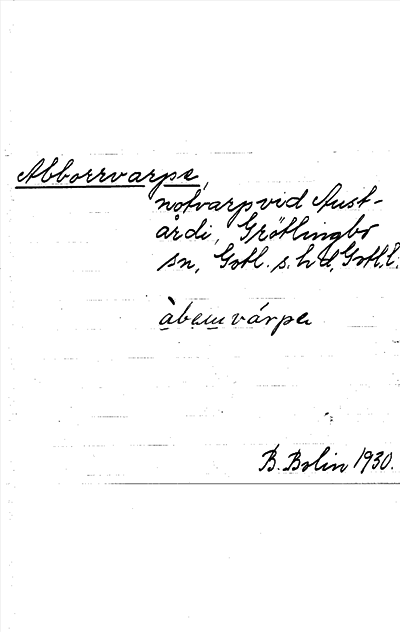 Abborrvarpe,
notvarp vid Aust-
årdi, Grötlingbo
sn, Gotl. s. hd, Gotl. l.
B. Bolin 1930.